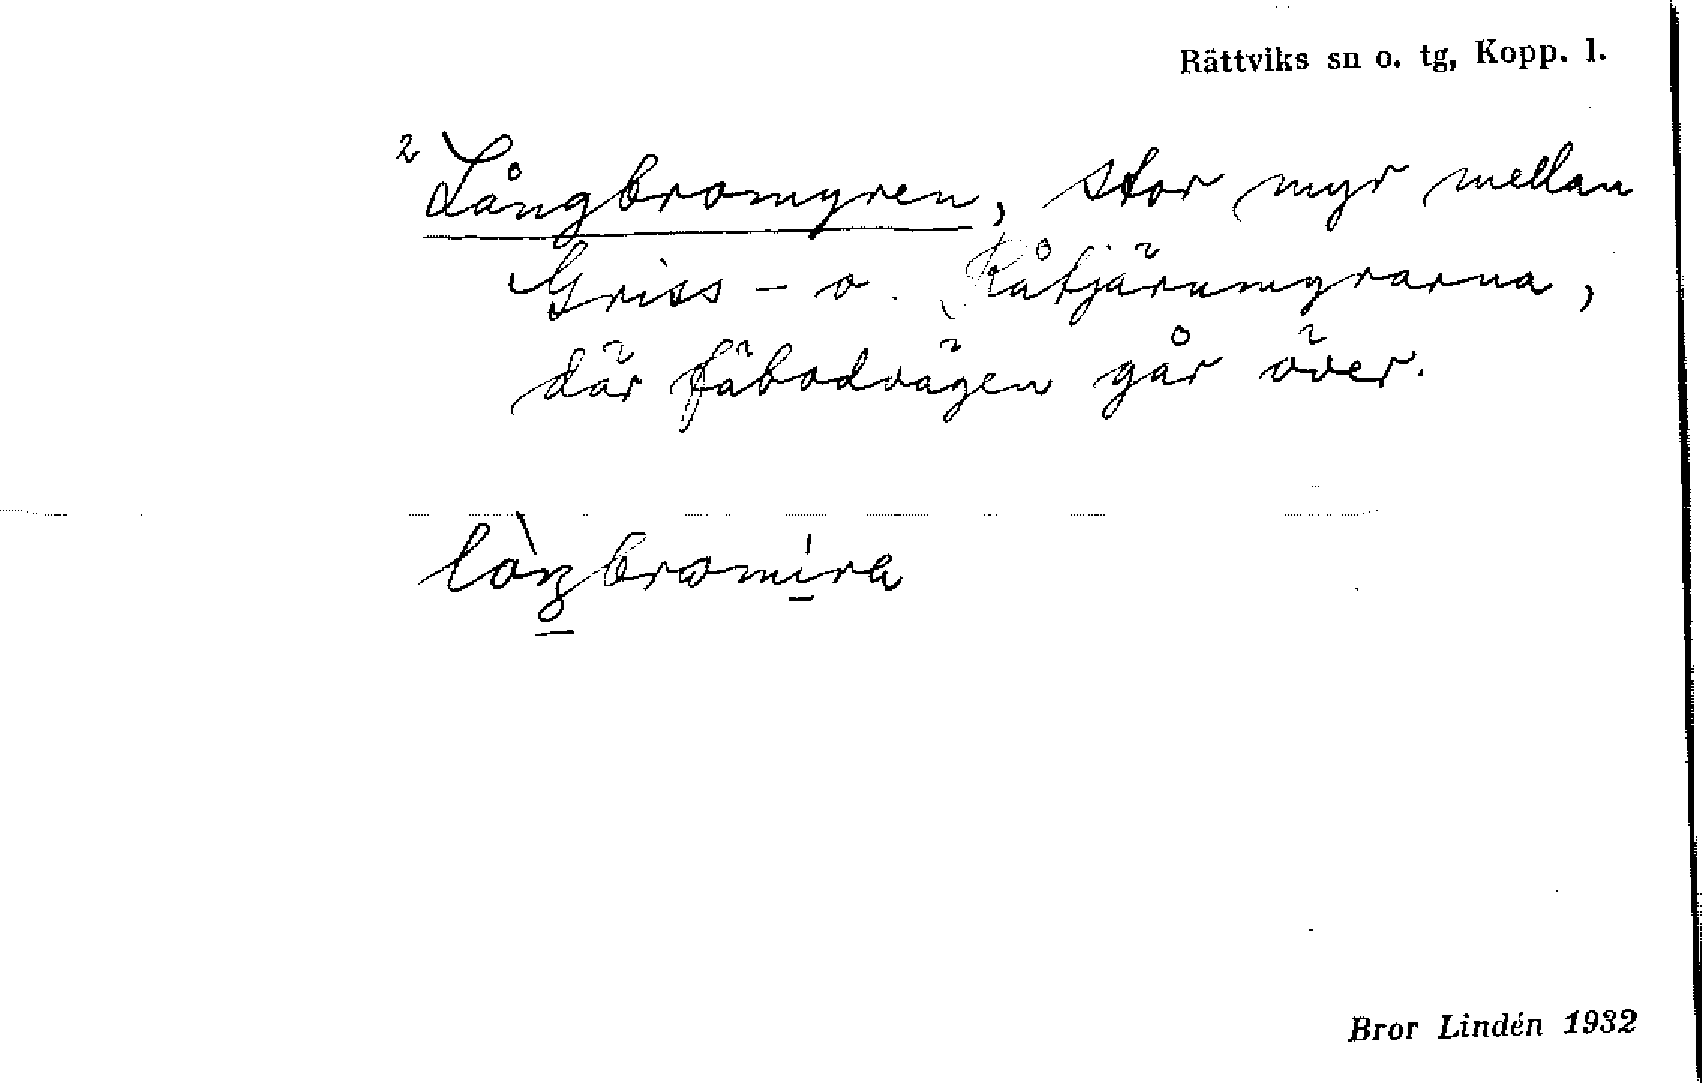 Rättviks sn o. tg, Kopp. l.
2 Långbromyren, stor myr mellan
Griss- o. Råtjärnmyrarna,
där fäbodvägen går över.
lòŋbromira
Bror Lindén 1932